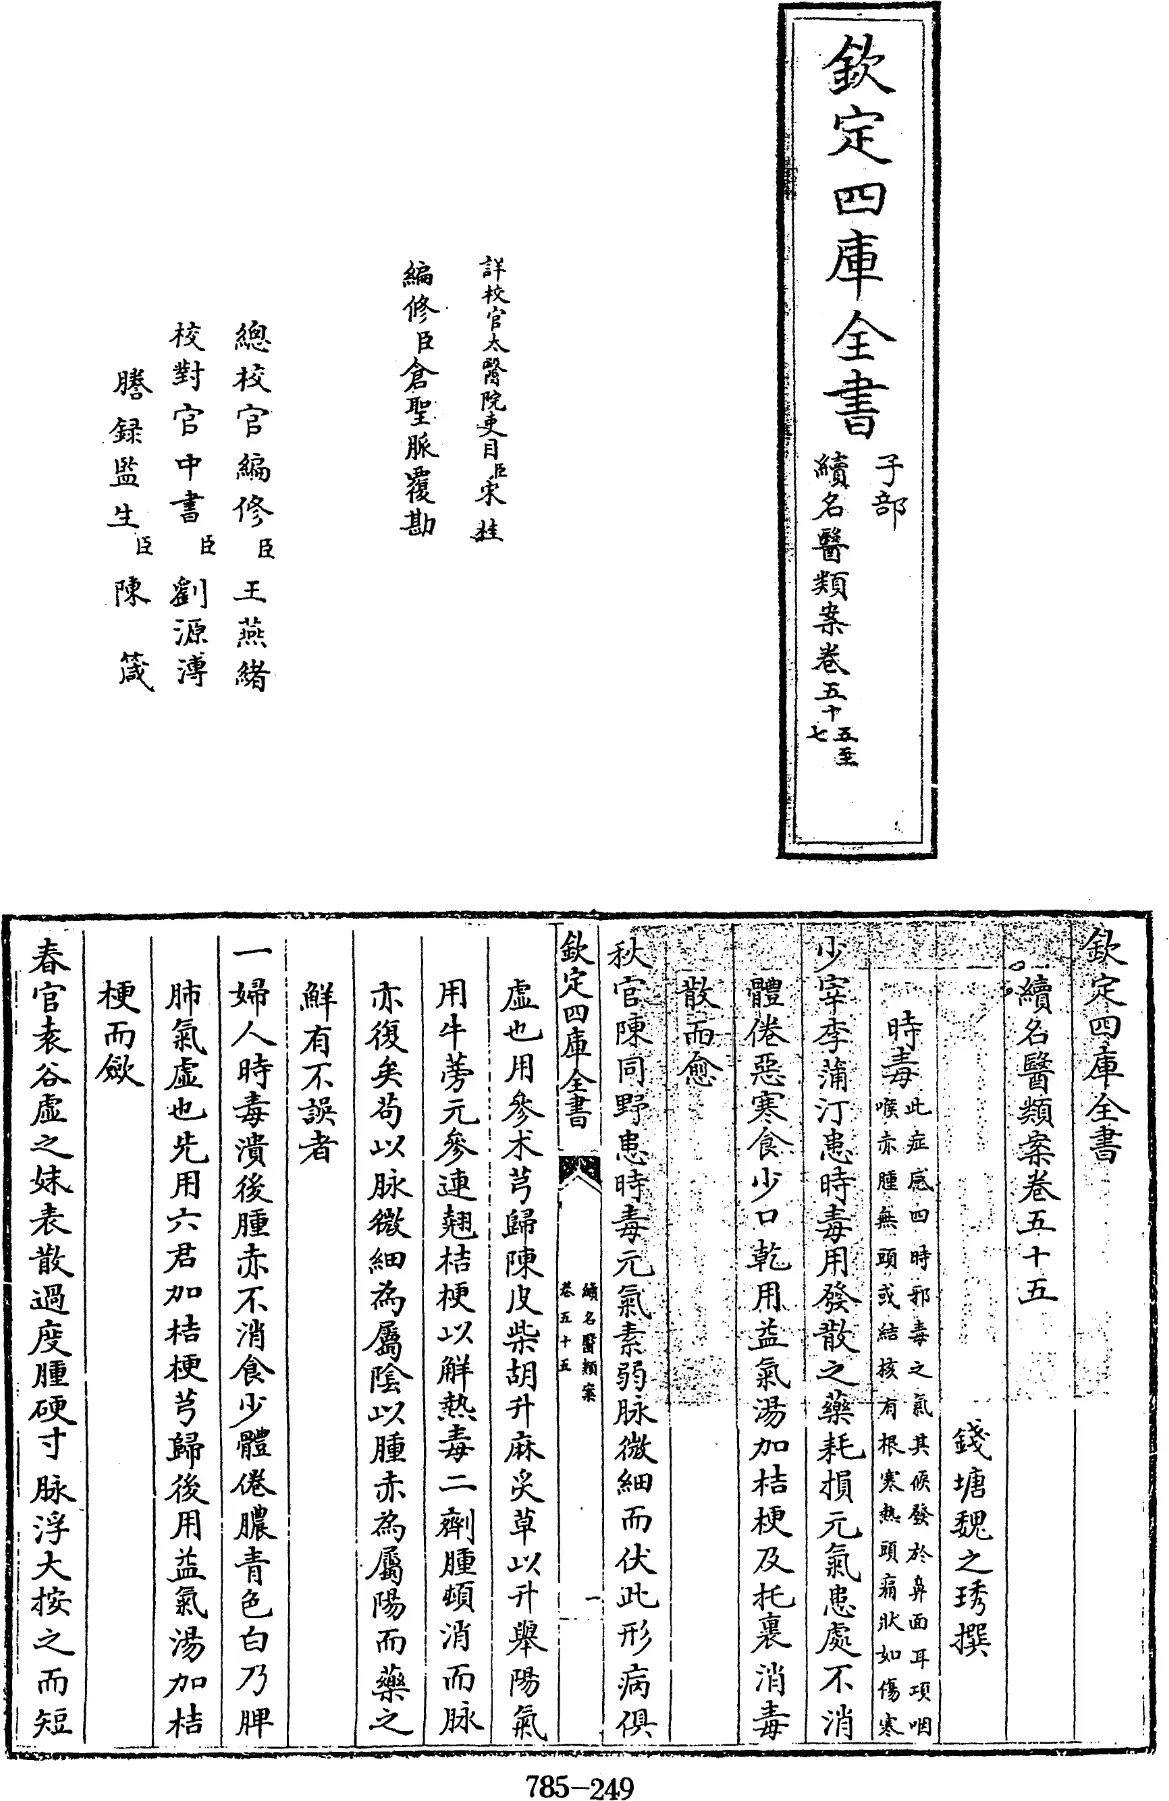 欽定四庫全書
子部
續名醫類案卷五十五至
七
詳校官太醫院吏目臣宋桂
編修臣倉聖脈覆勘
總校官編修臣王燕緒
校對官中書臣劉源溥
謄録監生臣陳箴
欽定四庫全書
續名醫類案卷五十五
錢塘魏之琇撰
時毒此症感四時邪毒之氣其候發於鼻面耳項咽
喉赤腫無頭或結核有根寒熱頭痛狀如傷寒
少宰李蒲汀患時毒用發散之藥耗損元氣患處不消
體倦惡寒食少口乾用益氣湯加桔梗及托裏消毒
散而愈
秋官陳同野患時毒元氣素弱脉微細而伏此形病俱
欽定四庫全書
續名醫類案
卷五十五
一
虛也用參术芎歸陳皮柴胡升麻炙草以升舉陽氣
用牛蒡元參連翹桔梗以解熱毒二劑腫頓消而脉
亦復矣苟以脉微細為屬陰以腫赤為屬陽而藥之
鮮有不誤者
一婦人時毒潰後腫赤不消食少體倦膿青色白乃脾
肺氣虛也先用六君加桔梗芎歸後用益氣湯加桔
梗而斂
春官袁谷虛之妹表散過度腫硬寸脉浮大按之而短
785-249